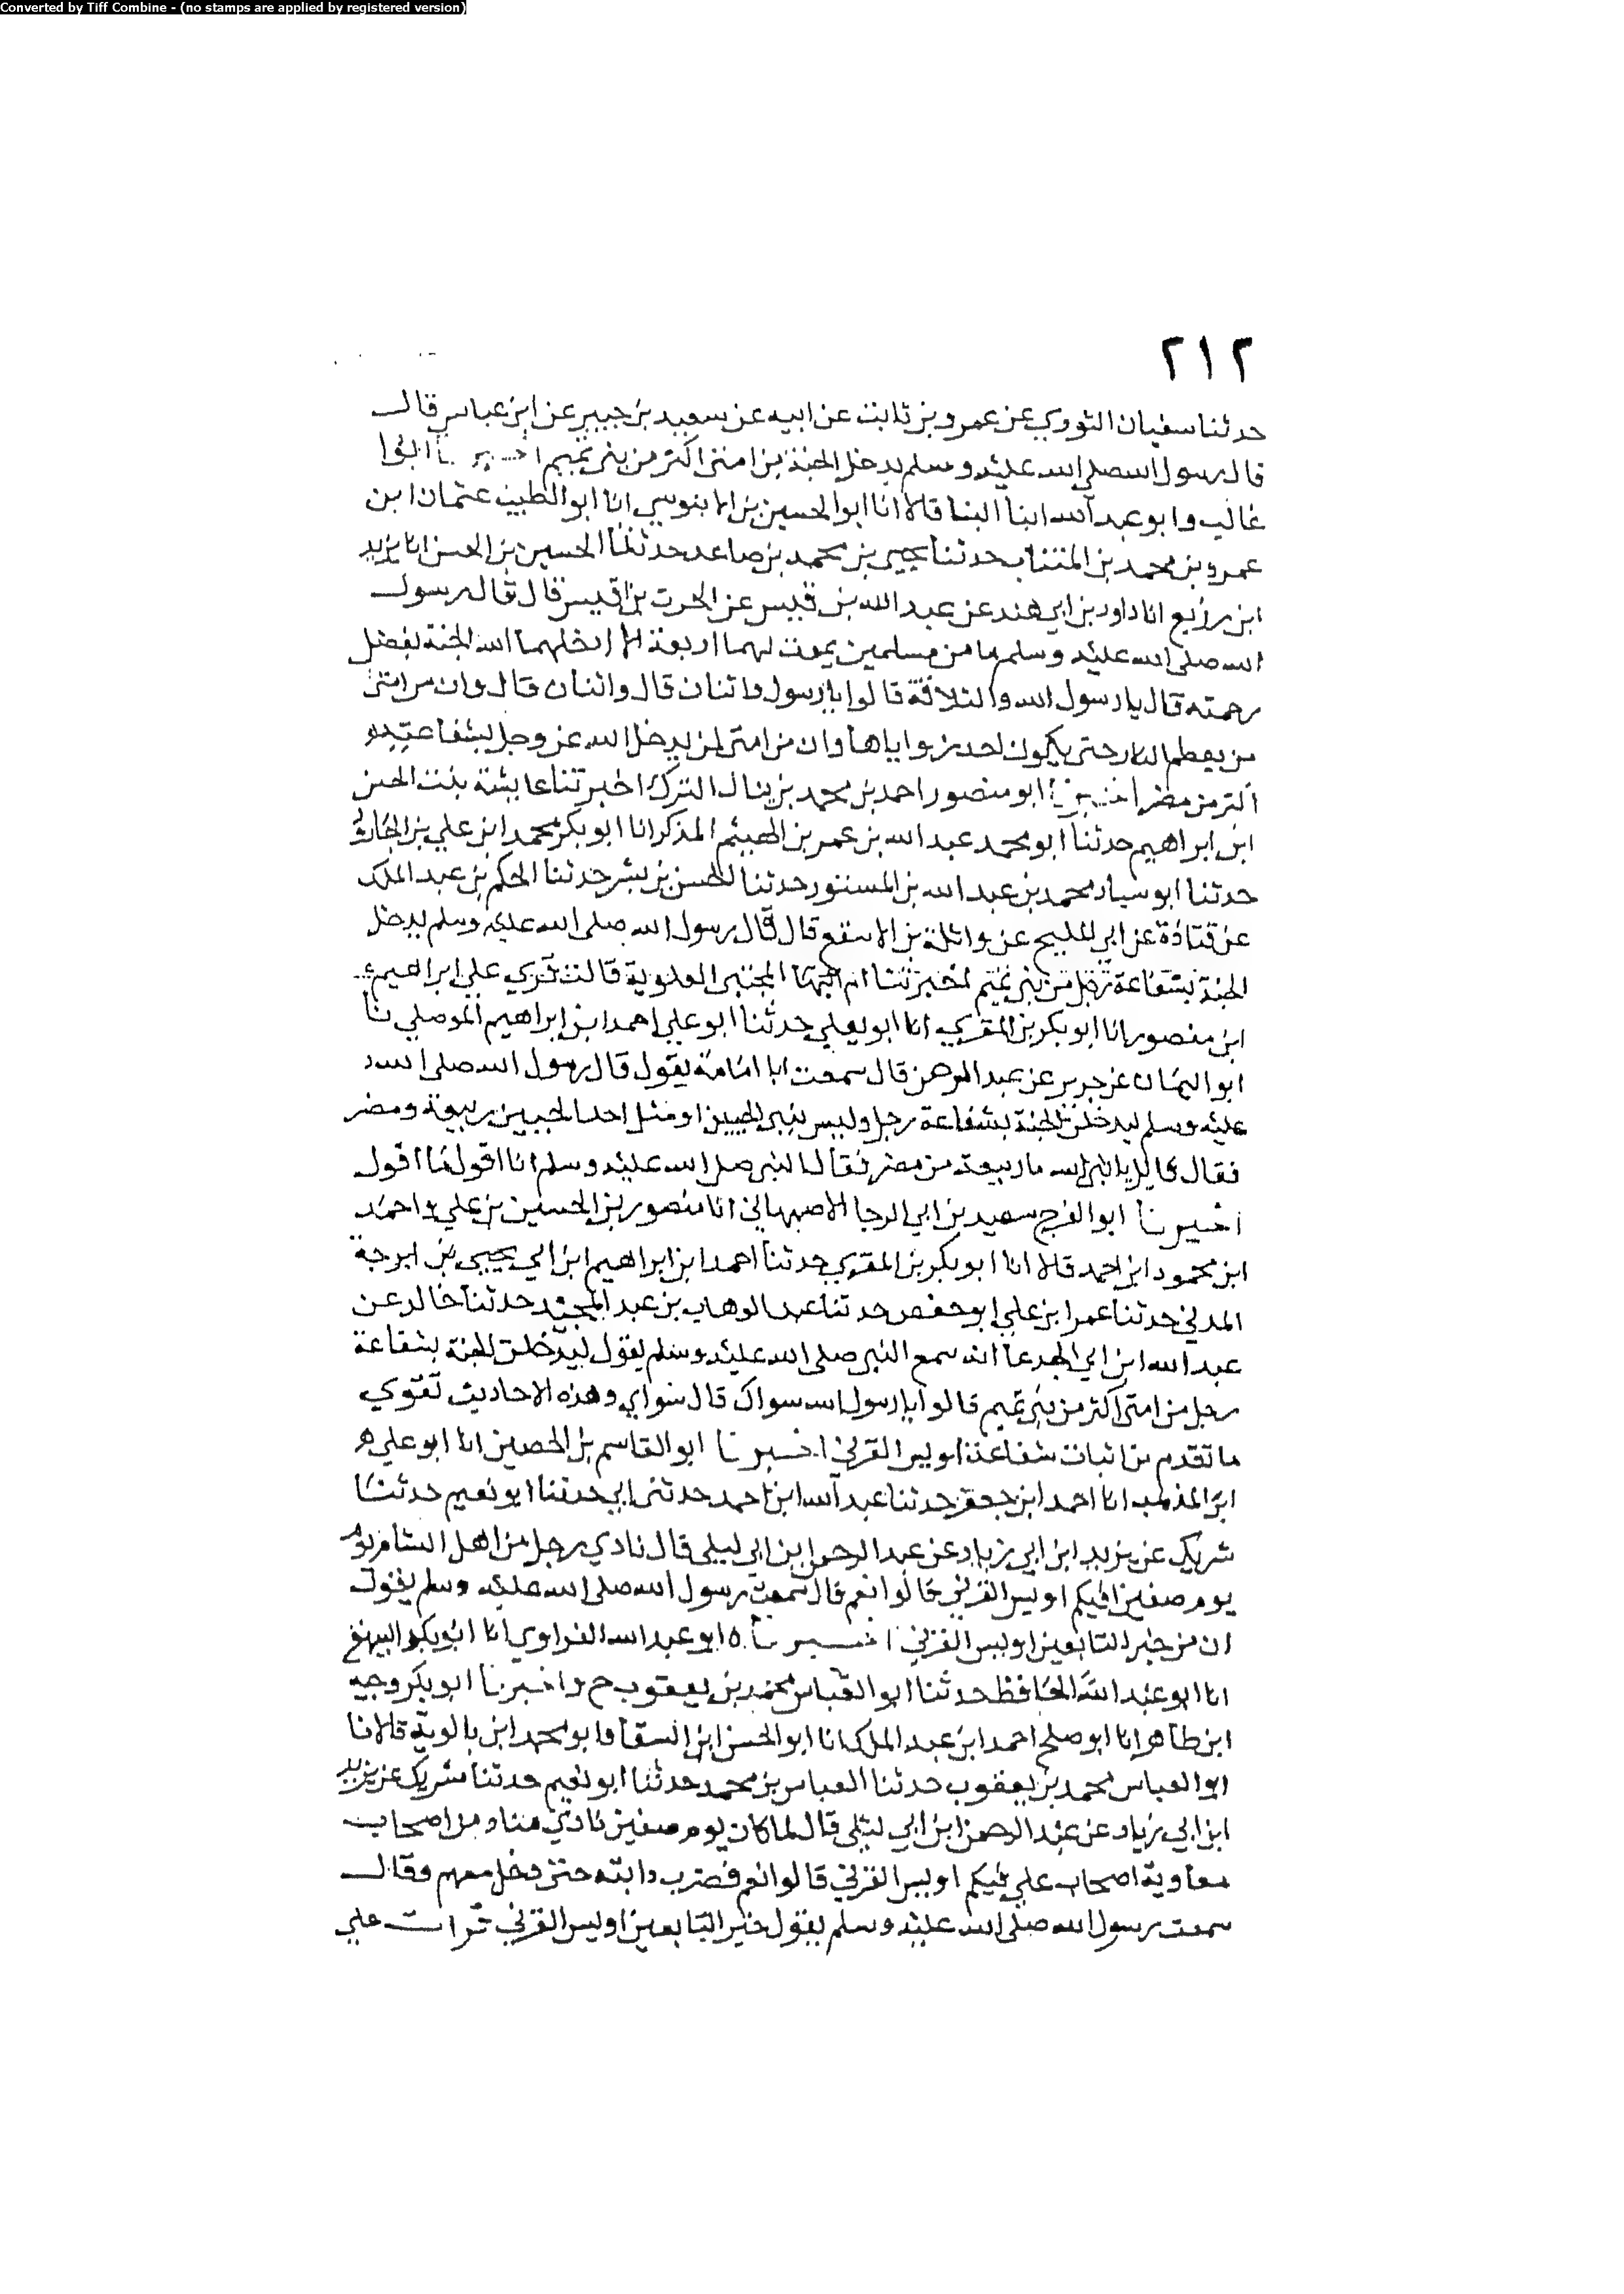 Converted by Tiff Combine - (no stamps are applied by registered version)
٢١٢
حدثنا سفيان الثوري عن عمرو بن ثابت عن ابيه عن سعيد بن جبير عن ابن عباس قال
قال رسول الله صلى الله عليه وسلم يدخل الجنة من امتي اكثر من بني تميم اخبرنا ابوا
غالب وابو عبد الله ابنا البنا قالا انا ابو الحسين بن الابنوسي انا ابو الطيب عثمان ابن
عمرو بن محمد بن المنتاب حدثنا يحيى بن محمد بن صاعد حدثنا الحسين بن الحسن انا يزيد
ابن زريع انا داود بن ابي هند عن عبد الله بن قيس عن الحرث بن اقيس قال قال رسول
الله صلى الله عليه وسلم ما من مسلمين يموت لهما اربعة الا ادخلهما الله الجنة بفضل
رحمته قال يا رسول الله والثلاثة قالوا يا رسول واثنان قال واثنان قال وان من امتي
من يعظم للنار حتى يكون احد زواياها وان من امتي لمن يدخل الله عز وجل بشفاعته
اكثر من مضر اخبرنا ابو منصور احمد بن محمد بن ينال الترك اخبرتنا عايشة بنت الحسن
ابن ابراهيم حدثنا ابو محمد عبد الله بن عمر بن الهيثم المذكر انا ابو بكر محمد ابن علي بن الجارود
حدثنا ابو سيار محمد بن عبد الله بن المستنور حدثنا الحسن بن بشر حدثنا الحكم بن عبد الملك
عن قتادة عن ابي المليح عن واثلة بن الاسقع قال قال رسول الله صلى الله عليه وسلم يدخل
الجنة بشفاعة رجل من بني تميم اخبرتنا ام البها المجتبى العلوية قالت قري علي ابراهيم
ابن منصور انا ابو بكر بن المقري انا ابو يعلي حدثنا ابو علي احمد ابن ابراهيم الموصلي نا
ابو اليمان عن جرير عن عبد الرحمن قال سمعت ابا امامة يقول قال رسول الله صلى الله
عليه وسلم ليدخلن الجنة بشفاعة رجل وليس بنبي الحيين او مثل احد الحيين ربيعة ومضر
فقال قايل يا نبي الله ما ربيعة من مضر فقال النبي صلى الله عليه وسلم انا اقول ما اقول
اخبرنا ابو الفرج سعيد بن ابي الرجا الاصبهاني انا منصور بن الحسين بن علي واحمد
ابن محمود ابن احمد قالا انا ابو بكر بن المقري حدثنا احمد ابن ابراهيم ابن ابي يحيى بن ابرجة
المدني حدثنا عمر ابن علي ابو حفص حدثنا عبد الوهاب بن عبد المجيد حدثنا خالد عن
عبد الله ابن ابي الجدعا انه سمع النبي صلى الله عليه وسلم يقول ليدخلن الجنة بشفاعة
رجل من امتي اكثر من بني تميم قالوا يا رسول الله سواك قال سواي وهذه الاحاديث تقوي
ما تقدم من اثبات شفاعة اويس القرني اخبرنا ابو القاسم بن الحصين انا ابو علي
ابن المذهب انا احمد ابن جعفر حدثنا عبد الله ابن احمد حدثني ابي حدثنا ابو نعيم حدثنا
شريك عن يزيد ابن ابي زياد عن عبد الرحمن ابن ابي ليلى قال نادي رجل من اهل الشام
يوم صفين افيكم اويس القرني قالوا نعم قال سمعت رسول الله صلى الله عليه وسلم يقول
ان من خير التابعين اويس القرني اخبرنا ابو عبد الله الفراوي انا ابو بكر البيهقي
انا ابو عبد الله الحافظ حدثنا ابو العباس محمد بن يعقوب ح واخبرنا ابو بكر وجيه
ابن طاهر انا ابو صلح احمد ابن عبد الملك انا ابو الحسن ابن السقا وابو محمد ابن بالوية قالا نا
ابو العباس محمد بن يعقوب حدثنا العباس بن محمد حدثنا ابو نعيم حدثنا شريك عن يزيد
ابن ابي زياد عن عبد الرحمن ابن ابي ليلى قال لما كان يوم صفين نادي مناد من اصحاب
معاوية اصحاب علي فيكم اويس القرني قالوا نعم فضرب دابته حتى دخل معهم وقال
سمعت رسول الله صلى الله عليه وسلم يقول خير التابعين اويس القرني قرات علي